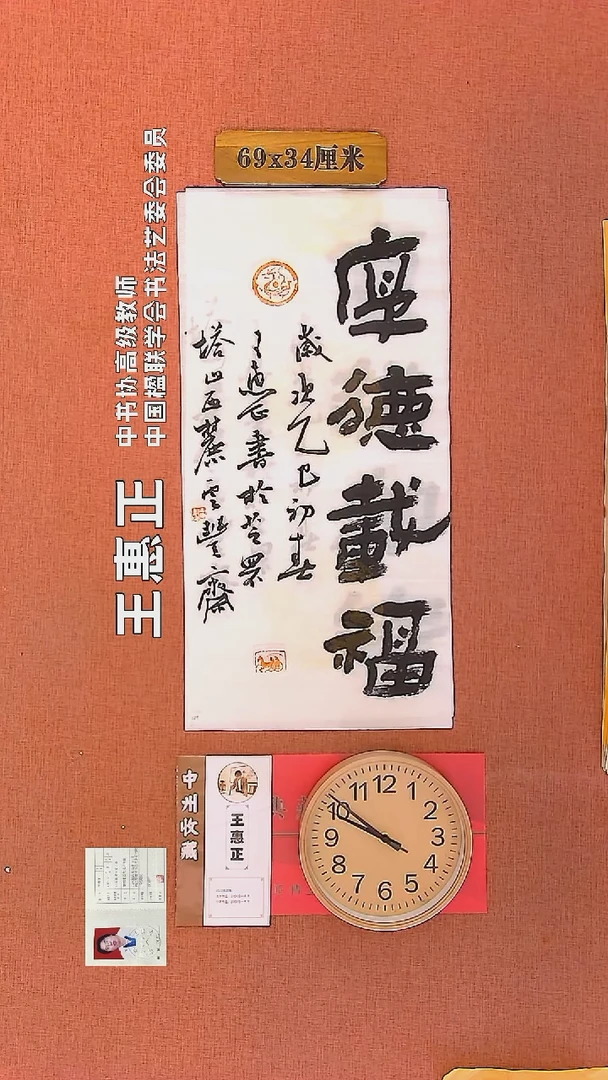 69x34厘米
厚德载福
歲次乙巳初春
王惠正書於芝罘
塔山石麓雲豐齋
王惠正
中书协高级教师
中国楹联学会书法艺委会委员
王惠正
12
1
2
3
4
5
6
7
8
9
10
11